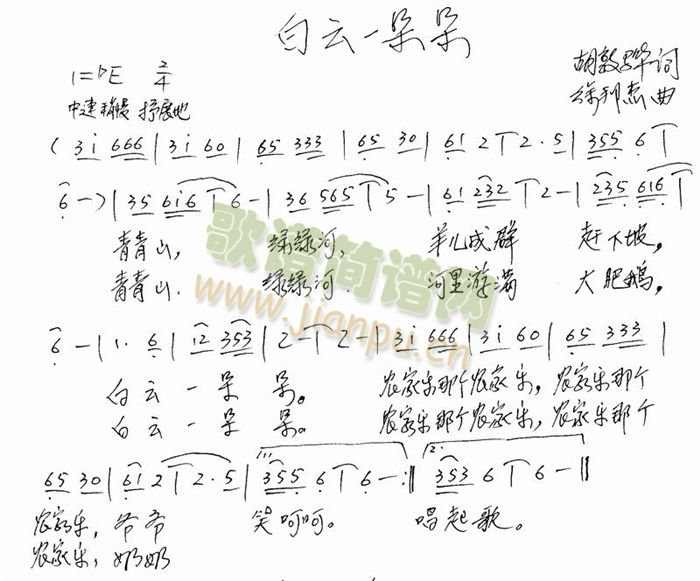 白云一朵朵
1=♭E 2/4
胡敦骅词
徐邦杰曲
中速稍慢 抒展地
( 3 i 666 | 3 i 60 | 65 333 | 65 30 | 61 2 | 2·5 | 355 6 |
6 - ) | 35 6i6 | 6 - | 36 565 | 5 - | 61 232 | 2 - | 235 616 |
青青山, 绿绿河, 羊儿成群 赶下坡,
青青山. 绿绿河 河里游满 大肥鹅,
6 - | 1· 6 | i2 353 | 2 - | 2 - | 3 i 666 | 3 i 60 | 65 333 |
白云一朵朵。 农家乐那个农家乐, 农家乐那个
白云一朵朵。 农家乐那个农家乐, 农家乐那个
65 30 | 61 2 | 2·5 | 355 6 | 6 - :‖ 353 6 | 6 - ‖
农家乐, 爷爷 笑呵呵。 唱起歌。
农家乐, 奶奶
歌谱简谱网
www.jianpu.cn